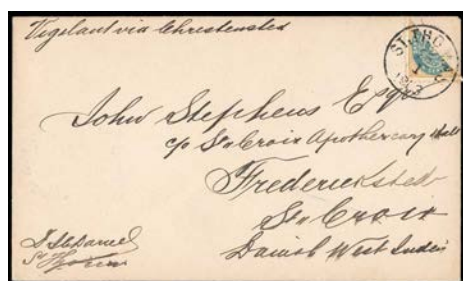 Vigelant via Christensted
ST. THOMAS
John Stephens Esqr
c/o St Croix Apothercary Hall
Frederiksted
St Croix
Danish West Indies
St